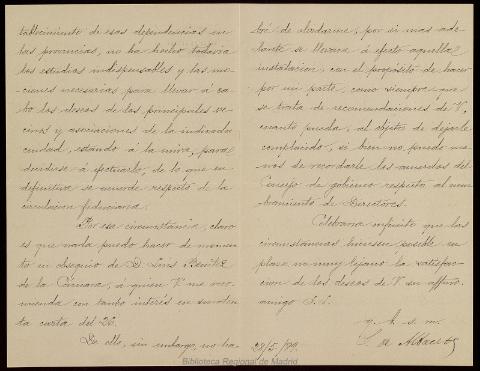 tablecimiento de esas dependencias en
las provincias, no ha hecho todavia
los estudios indispensables y las mo-
ciones necesarias para llevar á ca-
bo los deseos de las principales ve-
cinos y asociaciones de la indicada
ciudad, estando á la mira, para
decidirse á efectuarlo, de lo que en
definitiva se acuerde respecto de la
circulacion fiduciaria.
Por esa circunstancia, claro
es que nada puedo hacer de momen-
to en obsequio de D. Luis Benitez
de la Cámara, á quien V. me reco-
mienda con tanto interés en su aten-
ta carta del 26.
De ello, sin embargo, no ha-
bré de olvidarme, por si mas ade-
lante se llevara á efecto aquella
instalacion, con el propósito de hacer
por mi parte, como siempre que
se trata de recomendaciones de V.,
cuanto pueda, al objeto de dejarle
complacido, si bien no puedo me-
nos de recordarle los acuerdos del
Consejo de gobierno respecto al nom-
bramiento de Directores.
Celebraria infinito que las
circunstancias hiciesen posible en
plazo no muy lejano la satisfac-
cion de los deseos de V. su affmo.
amigo S. S.
q. b. s. m.
28/5/99
Biblioteca Regional de Madrid